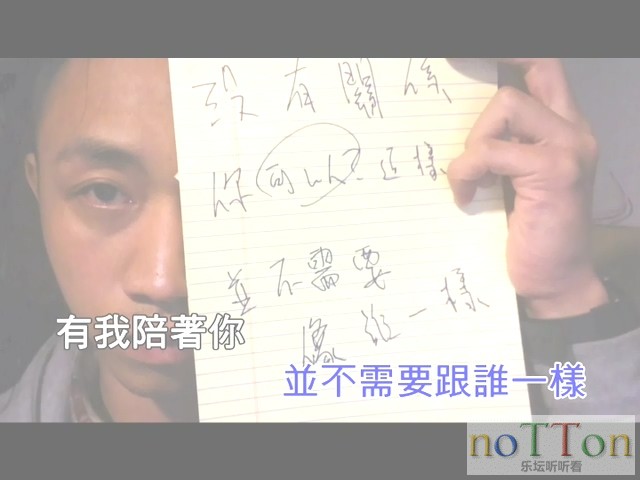 沒有關係
你可以不這樣
並不需要
像誰一樣
有我陪著你
並不需要跟誰一樣
noTTon
乐坛听听看